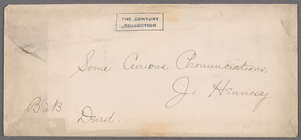 THE CENTURY
COLLECTION
Some Curious Pronunciations
J. Hennesy
B & B
Dead.